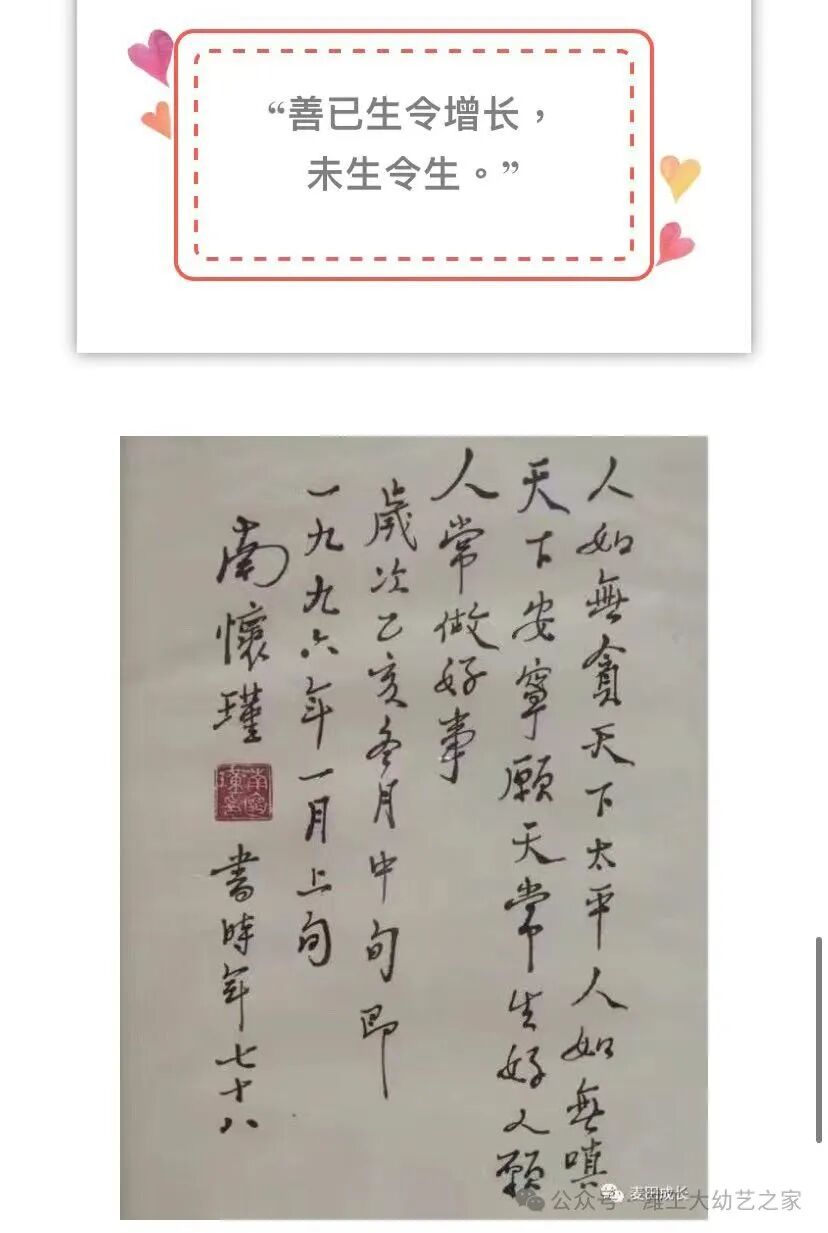 “善已生令增长，
未生令生。”
人如無貪天下太平人如無嗔
天下安寧願天常生好人願
人常做好事
歲次乙亥冬月中旬即
一九九六年一月上旬
南懷瑾
書時年七十八
麦田成长
公众号·潍上大幼艺之家